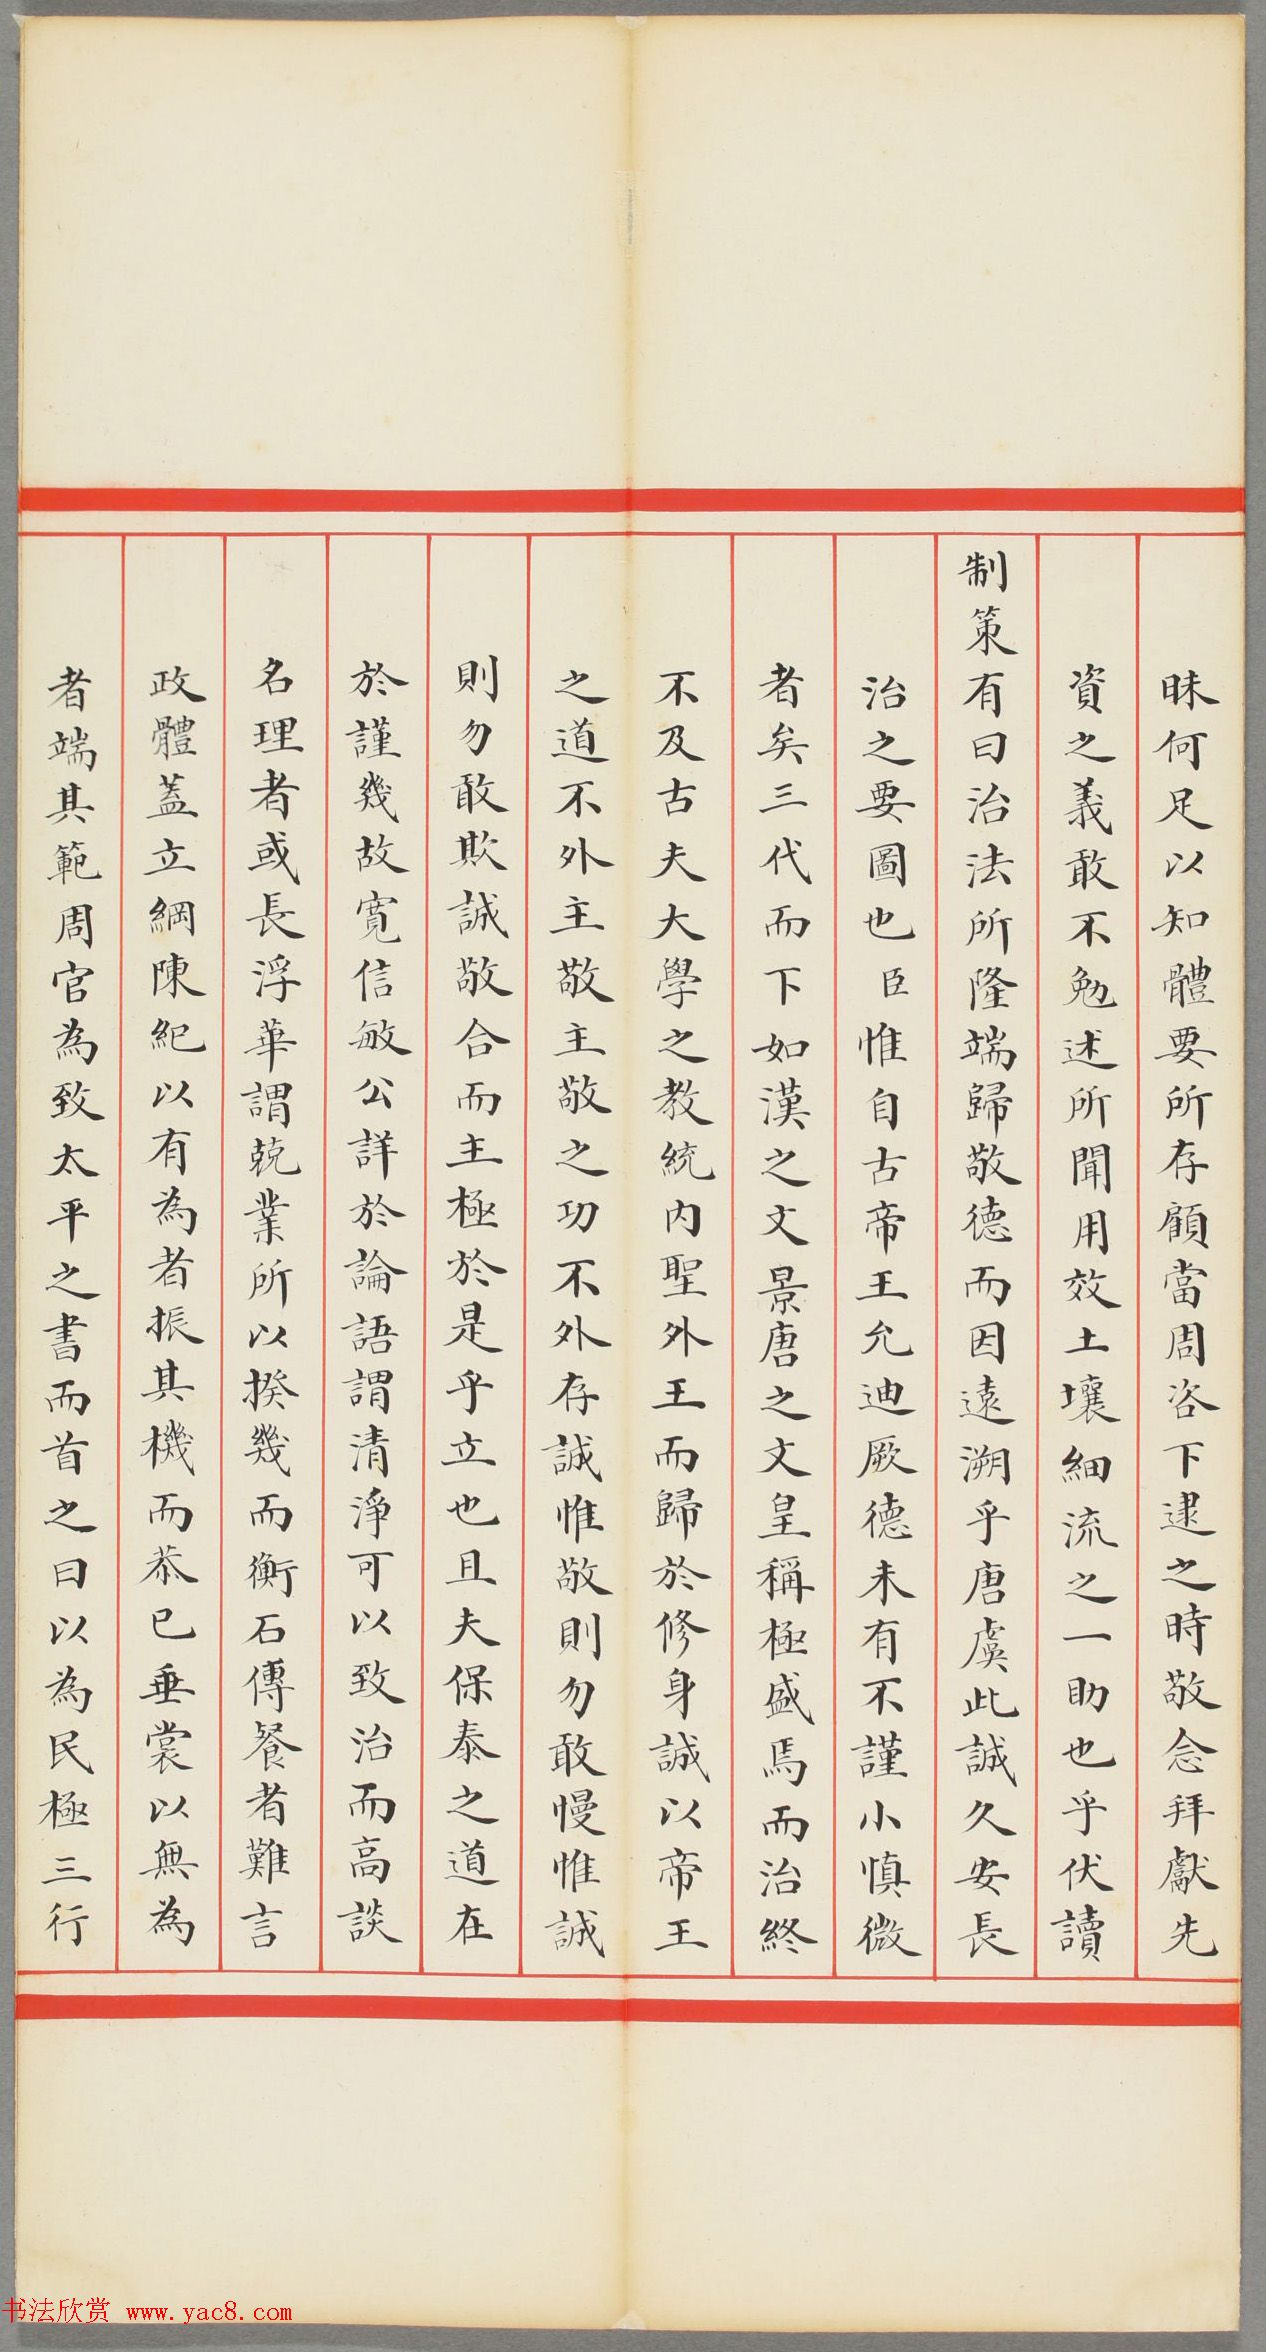 昧何足以知體要所存顧當周咨下逮之時敬念拜獻先
資之義敢不勉述所聞用效土壤細流之一助也乎伏讀
制策有曰治法所隆端歸敬德而因遠溯乎唐虞此誠久安長
治之要圖也臣惟自古帝王允迪厥德未有不謹小慎微
者矣三代而下如漢之文景唐之文皇稱極盛焉而治終
不及古夫大學之教統內聖外王而歸於修身誠以帝王
之道不外主敬主敬之功不外存誠惟敬則勿敢慢惟誠
則勿敢欺誠敬合而主極於是乎立也且夫保泰之道在
於謹幾故寬信敏公詳於論語謂清淨可以致治而高談
名理者或長浮華謂兢業所以揆幾而衡石傳餐者難言
政體蓋立綱陳紀以有為者振其機而恭已垂裳以無為
者端其範周官為致太平之書而首之曰以為民極三行
书法欣赏 www.yac8.com